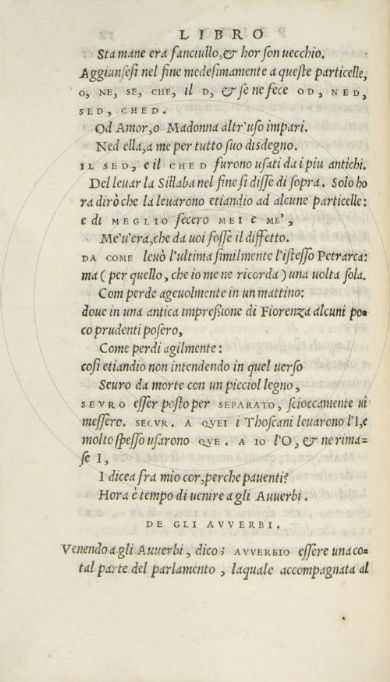 LIBRO
Sta mane era fanciullo, & hor son uecchio.
Aggiunsesi nel fine medesimamente a queste particelle,
O, NE, SE, CHE, il D, & se ne fece OD, NED,
SED, CHED.
Od Amor, o Madonna altr'uso impari.
Ned ella, a me per tutto suo disdegno.
IL SED, e il CHED furono usati da i piu antichi.
Del leuar la Sillaba nel fine si disse di sopra. Solo ho
ra dirò che la leuarono etiandio ad alcune particelle:
e di MEGLIO fecero MEI e ME',
Me'u'era, che da uoi fosse il diffetto.
DA COME leuò l'ultima similmente l'istesso Petrarca:
ma (per quello, che io me ne ricorda) una uolta sola.
Com perde ageuolmente in un mattino:
doue in una antica impressione di Fiorenza alcuni po=
co prudenti posero,
Come perdi agilmente:
cosi etiandio non intendendo in quel uerso
Seuro da morte con un picciol legno,
SEVRO esser posto per SEPARATO, scioccamente ui
messero. SECVR. A QVEI i Thoscani leuarono l'I, e
molto spesso usarono QVE. A IO l'O, & ne rima=
se I,
I dicea fra mio cor, perche pauenti?
Hora è tempo di uenire a gli Auuerbi.
DE GLI AVVERBI.
Venendo a gli Auuerbi, dico; AVVERBIO essere una co=
tal parte del parlamento, laquale accompagnata al